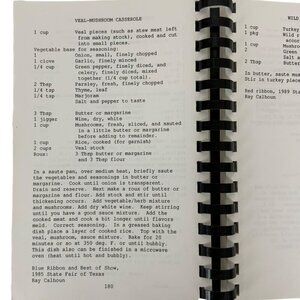 VEAL-MUSHROOM CASSEROLE
1 cup Veal pieces (such as stew meat left
from stock making), cooked and cut
into small pieces.
Vegetable base for seasoning:
1 Onion, small, finely chopped
1 clove Garlic, finely minced
1/4 cup Green pepper, finely diced, and
celery, finely diced, mixed
together (1/4 cup total).
2 Tbsp Parsley, fresh, finely chopped
1/4 tsp Thyme, leaf
1/4 tsp Marjoram
Salt and pepper to taste
3 Tbsp Butter or margarine
1 jigger Wine, dry, white
1 cup Mushrooms, fresh, sliced, and sauted
in a little butter or margarine
before adding to remainder.
1 cup Rice, cooked (for garnish)
2 cups Veal stock
Roux: 3 Tbsp butter or margarine
and 3 Tbsp flour
In a saute pan, over medium heat, briefly saute
the vegetables and seasonings in butter or
margarine. Cook until onion is transparent.
Drain and reserve. Next make a roux of butter or
margarine and flour. Add stock and stir until
thickening occurs. Add vegetable/herb mixture
and mushrooms. Add dry white wine. Keep stirring
until you have a good sauce mixture. Add the
cooked meat and cook a bit longer until flavors
meld. Correct seasoning. In a greased baking
dish place a layer of cooked rice. Top with the
veal, mushroom, sauce mixture. Bake for 20
minutes or so at 350 deg. F. or until bubbly.
This dish also can be finished in a microwave
oven (heat until hot and bubbly).
Blue Ribbon and Best of Show,
1985 State Fair of Texas
Kay Calhoun
180
WILD
1 cup Turkey
1 pkg Wild r
1 cup Mushro
Green
In butter, saute mush
Stir in turkey pieces
Red ribbon, 1989 Stat
Kay Calhoun